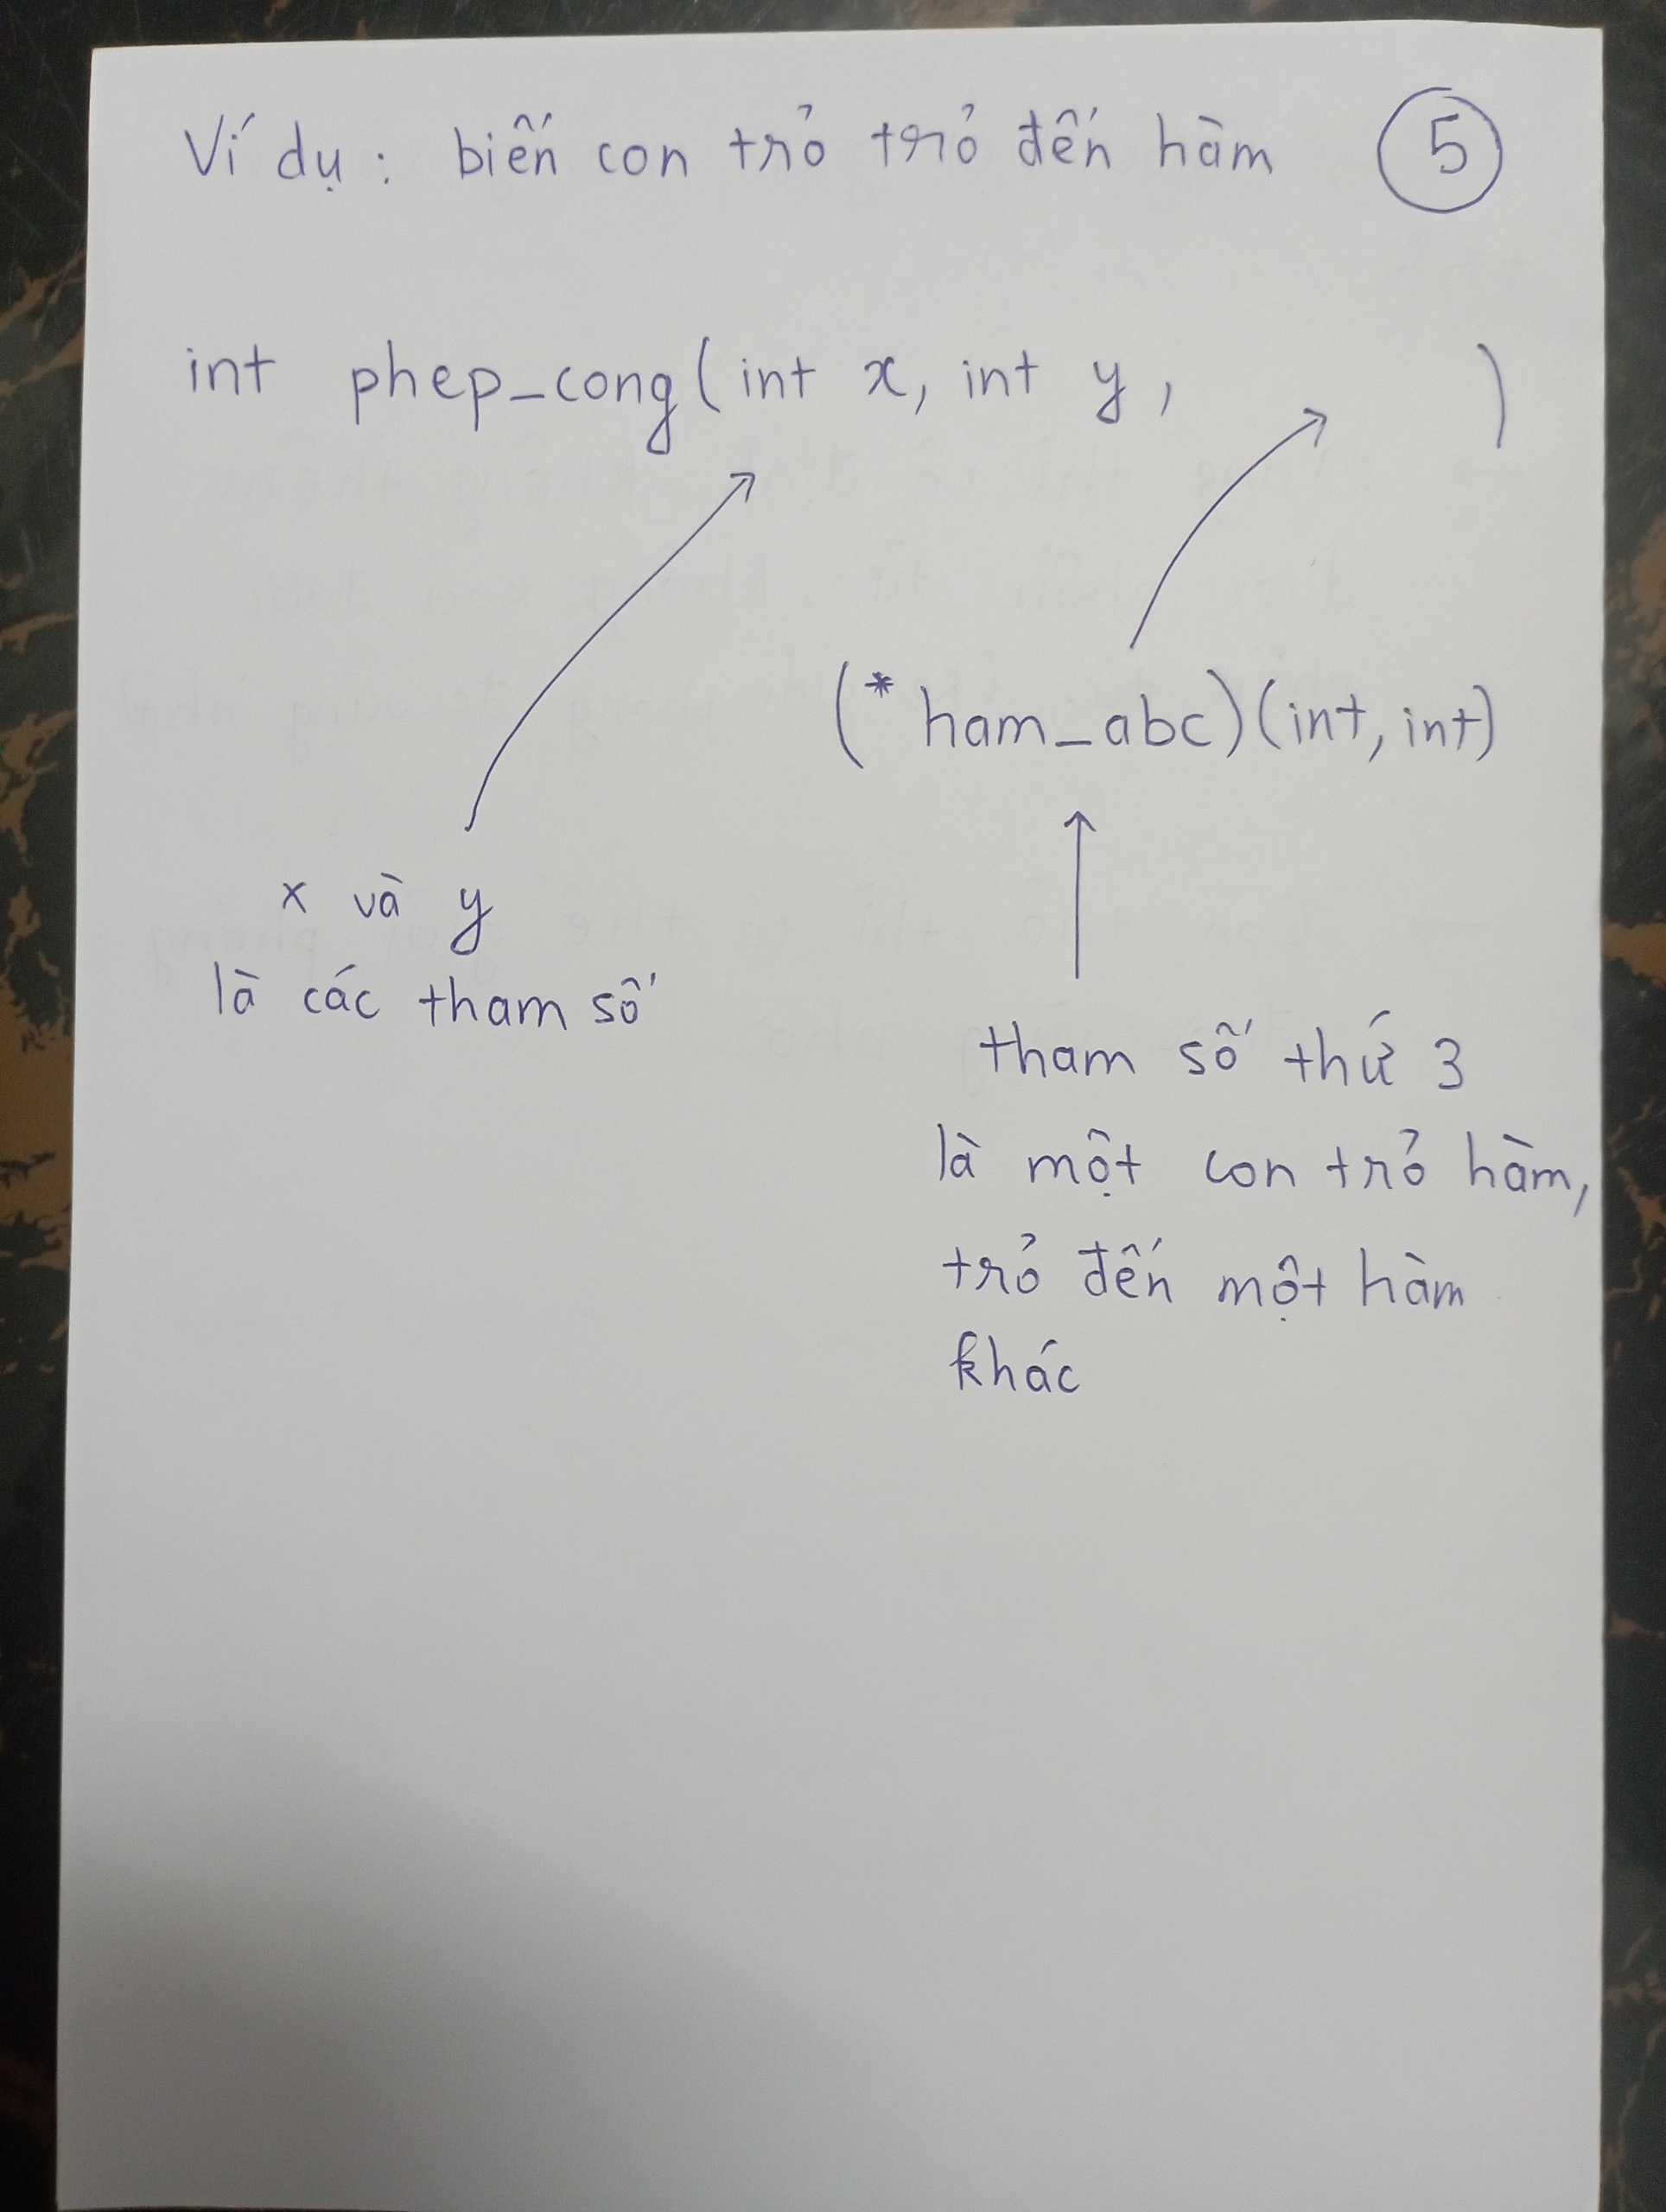 Ví dụ: biến con trỏ trỏ đến hàm 5
int phep_cong(int x, int y, )
(*ham_abc)(int, int)
x và y
là các tham số
tham số thứ 3
là một con trỏ hàm,
trỏ đến một hàm
khác